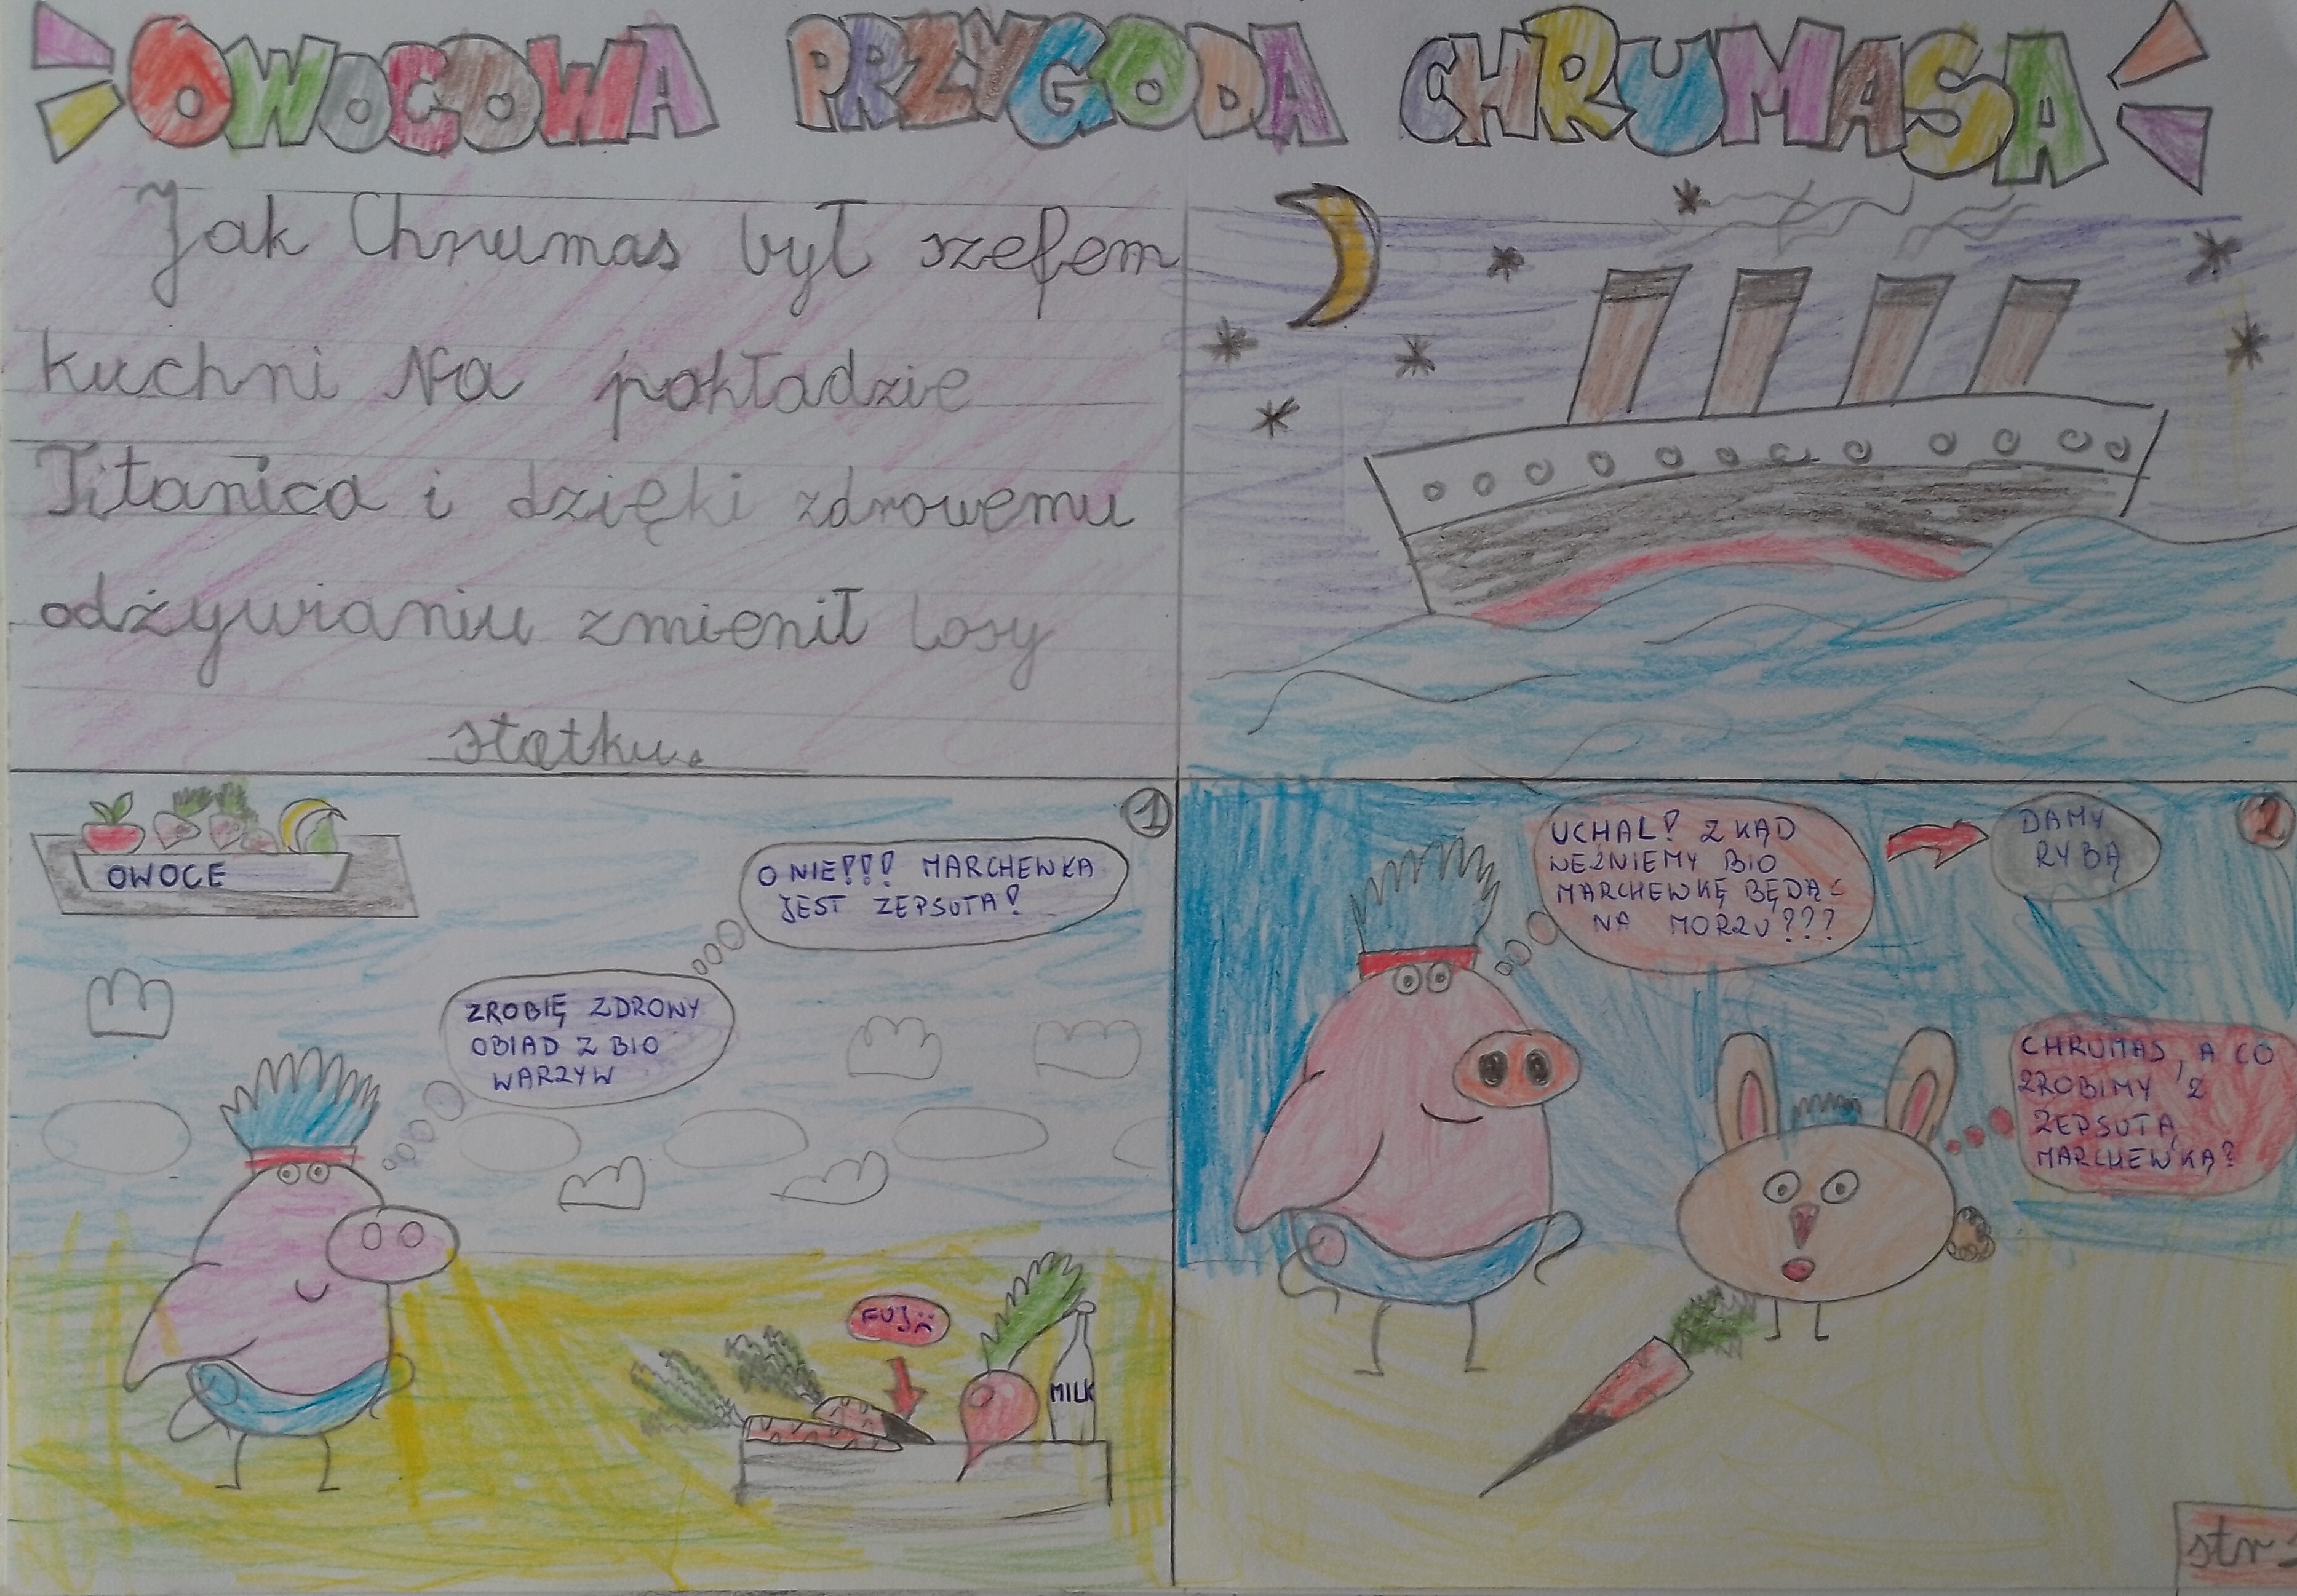 OWOCOWA PRZYGODA CHRUMASA
Jak Chrumas był szefem
kuchni Na pokładzie
Titanica i dzięki zdrowemu
odżywianiu zmienił losy
statku.
1
OWOCE
O NIE!!! MARCHEWKA
JEST ZEPSUTA!
ZROBIĘ ZDROWY
OBIAD Z BIO
WARZYW
FUJ
MILK
2
UCHAL! ZKĄD
WEŹNIEMY BIO
MARCHEWKĘ BĘDĄC
NA MORZU???
DAMY
RYBĄ
CHRUMAS, A CO
ZROBIMY Z
ZEPSUTĄ
MARCHEWKĄ?
str